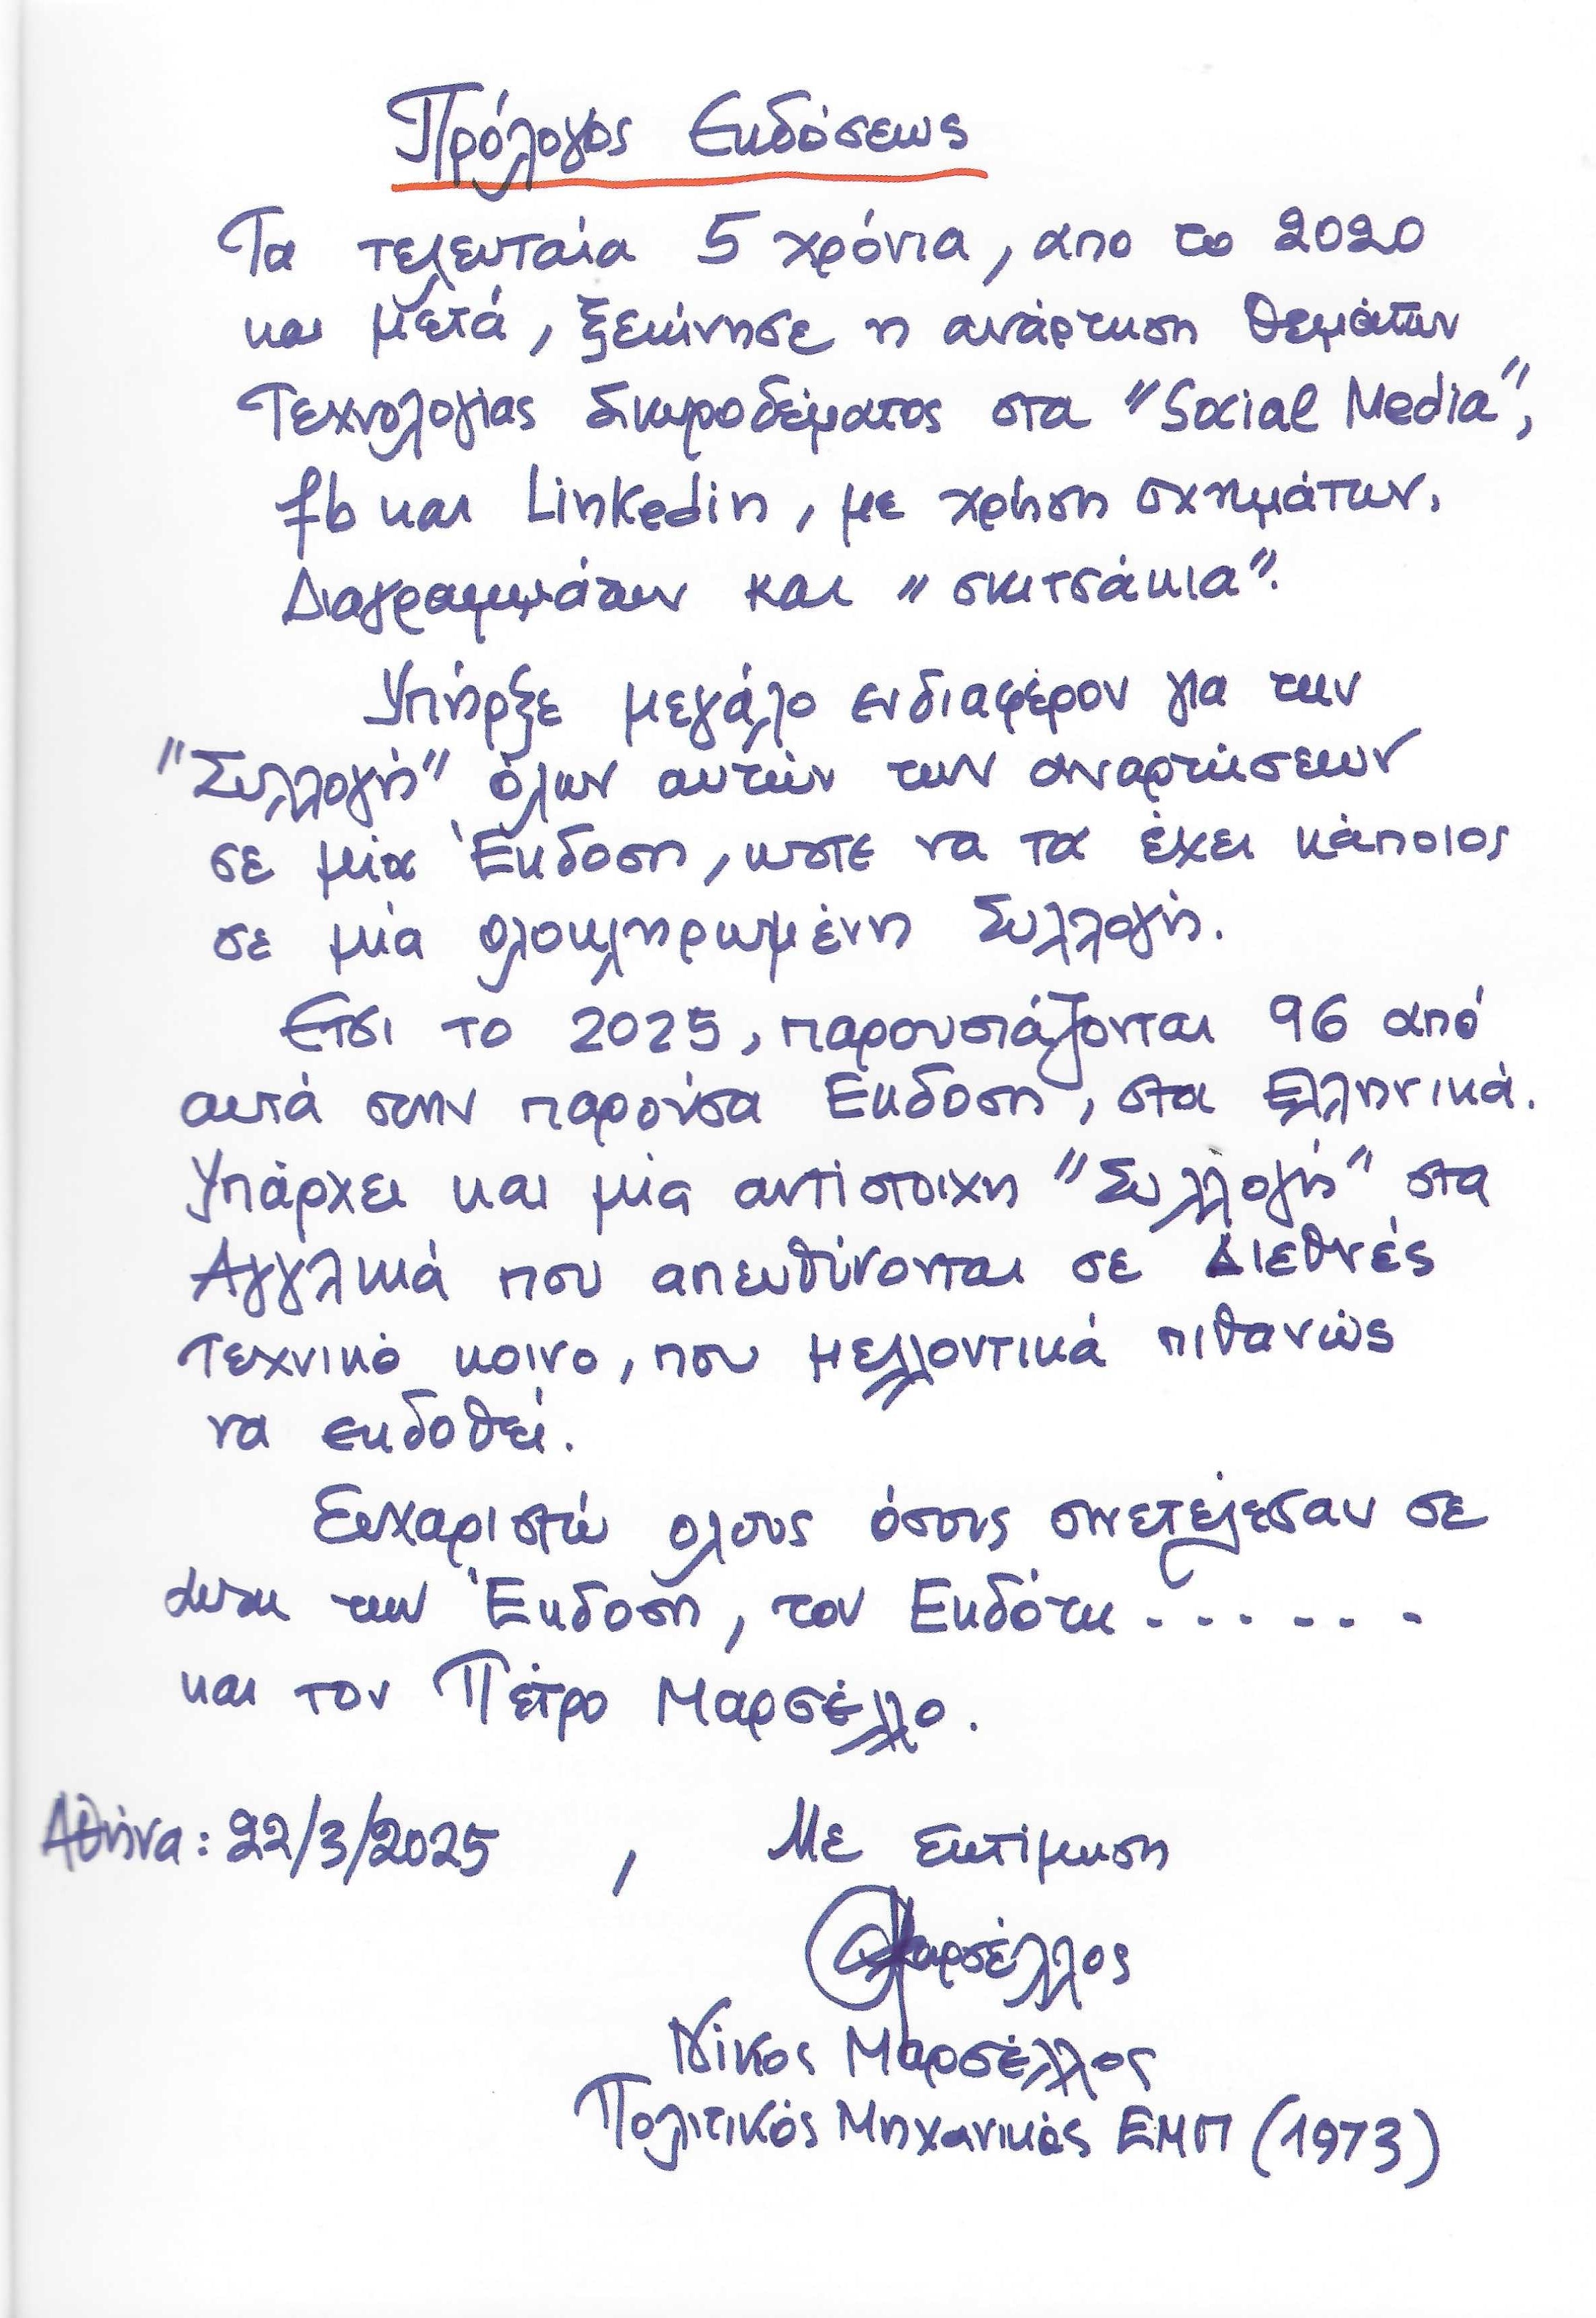 Πρόλογος Εκδόσεως
Τα τελευταία 5 χρόνια, απο το 2020
και μετά, ξεκίνησε η ανάρτηση θεμάτων
Τεχνολογίας Σκυροδέματος στα "Social Media",
fb και Linkedin, με χρήση σχημάτων,
Διαγραμμάτων και "σκιτσάκια".
Υπήρξε μεγάλο ενδιαφέρον για την
"Συλλογή" όλων αυτών των αναρτήσεων
σε μία Έκδοση, ωστε να τα έχει κάποιος
σε μία ολοκληρωμένη Συλλογή.
Ετσι το 2025, παρουσιάζονται 96 από
αυτά στην παρούσα Εκδοση, στα Ελληνικά.
Υπάρχει και μία αντίστοιχη "Συλλογή" στα
Αγγλικά που απευθύνονται σε Διεθνές
Τεχνικό κοινο, που μελλοντικά πιθανώς
να εκδοθεί.
Ευχαριστώ ολους όσους συνετέλεσαν σε
αυτή την Έκδοση, τον Εκδότη . - . - - -
και τον Πέτρο Μαρσέλλο.
Αθήνα: 22/3/2025 , Με εκτίμηση
Μαρσέλλος
Νίκος Μαρσέλλος
Πολιτικός Μηχανικός ΕΜΠ (1973)